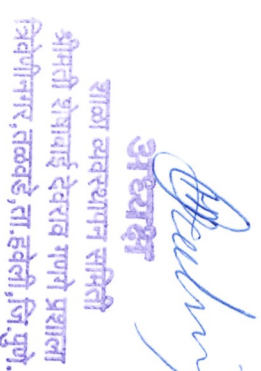 अध्यक्ष
शाळा व्यवस्थापन समिती
श्रीमती शेवाबाई देवराव गणगे प्रशाला
त्रिवेणीनगर,तळवडे,ता.हवेली,जि.पुणे.